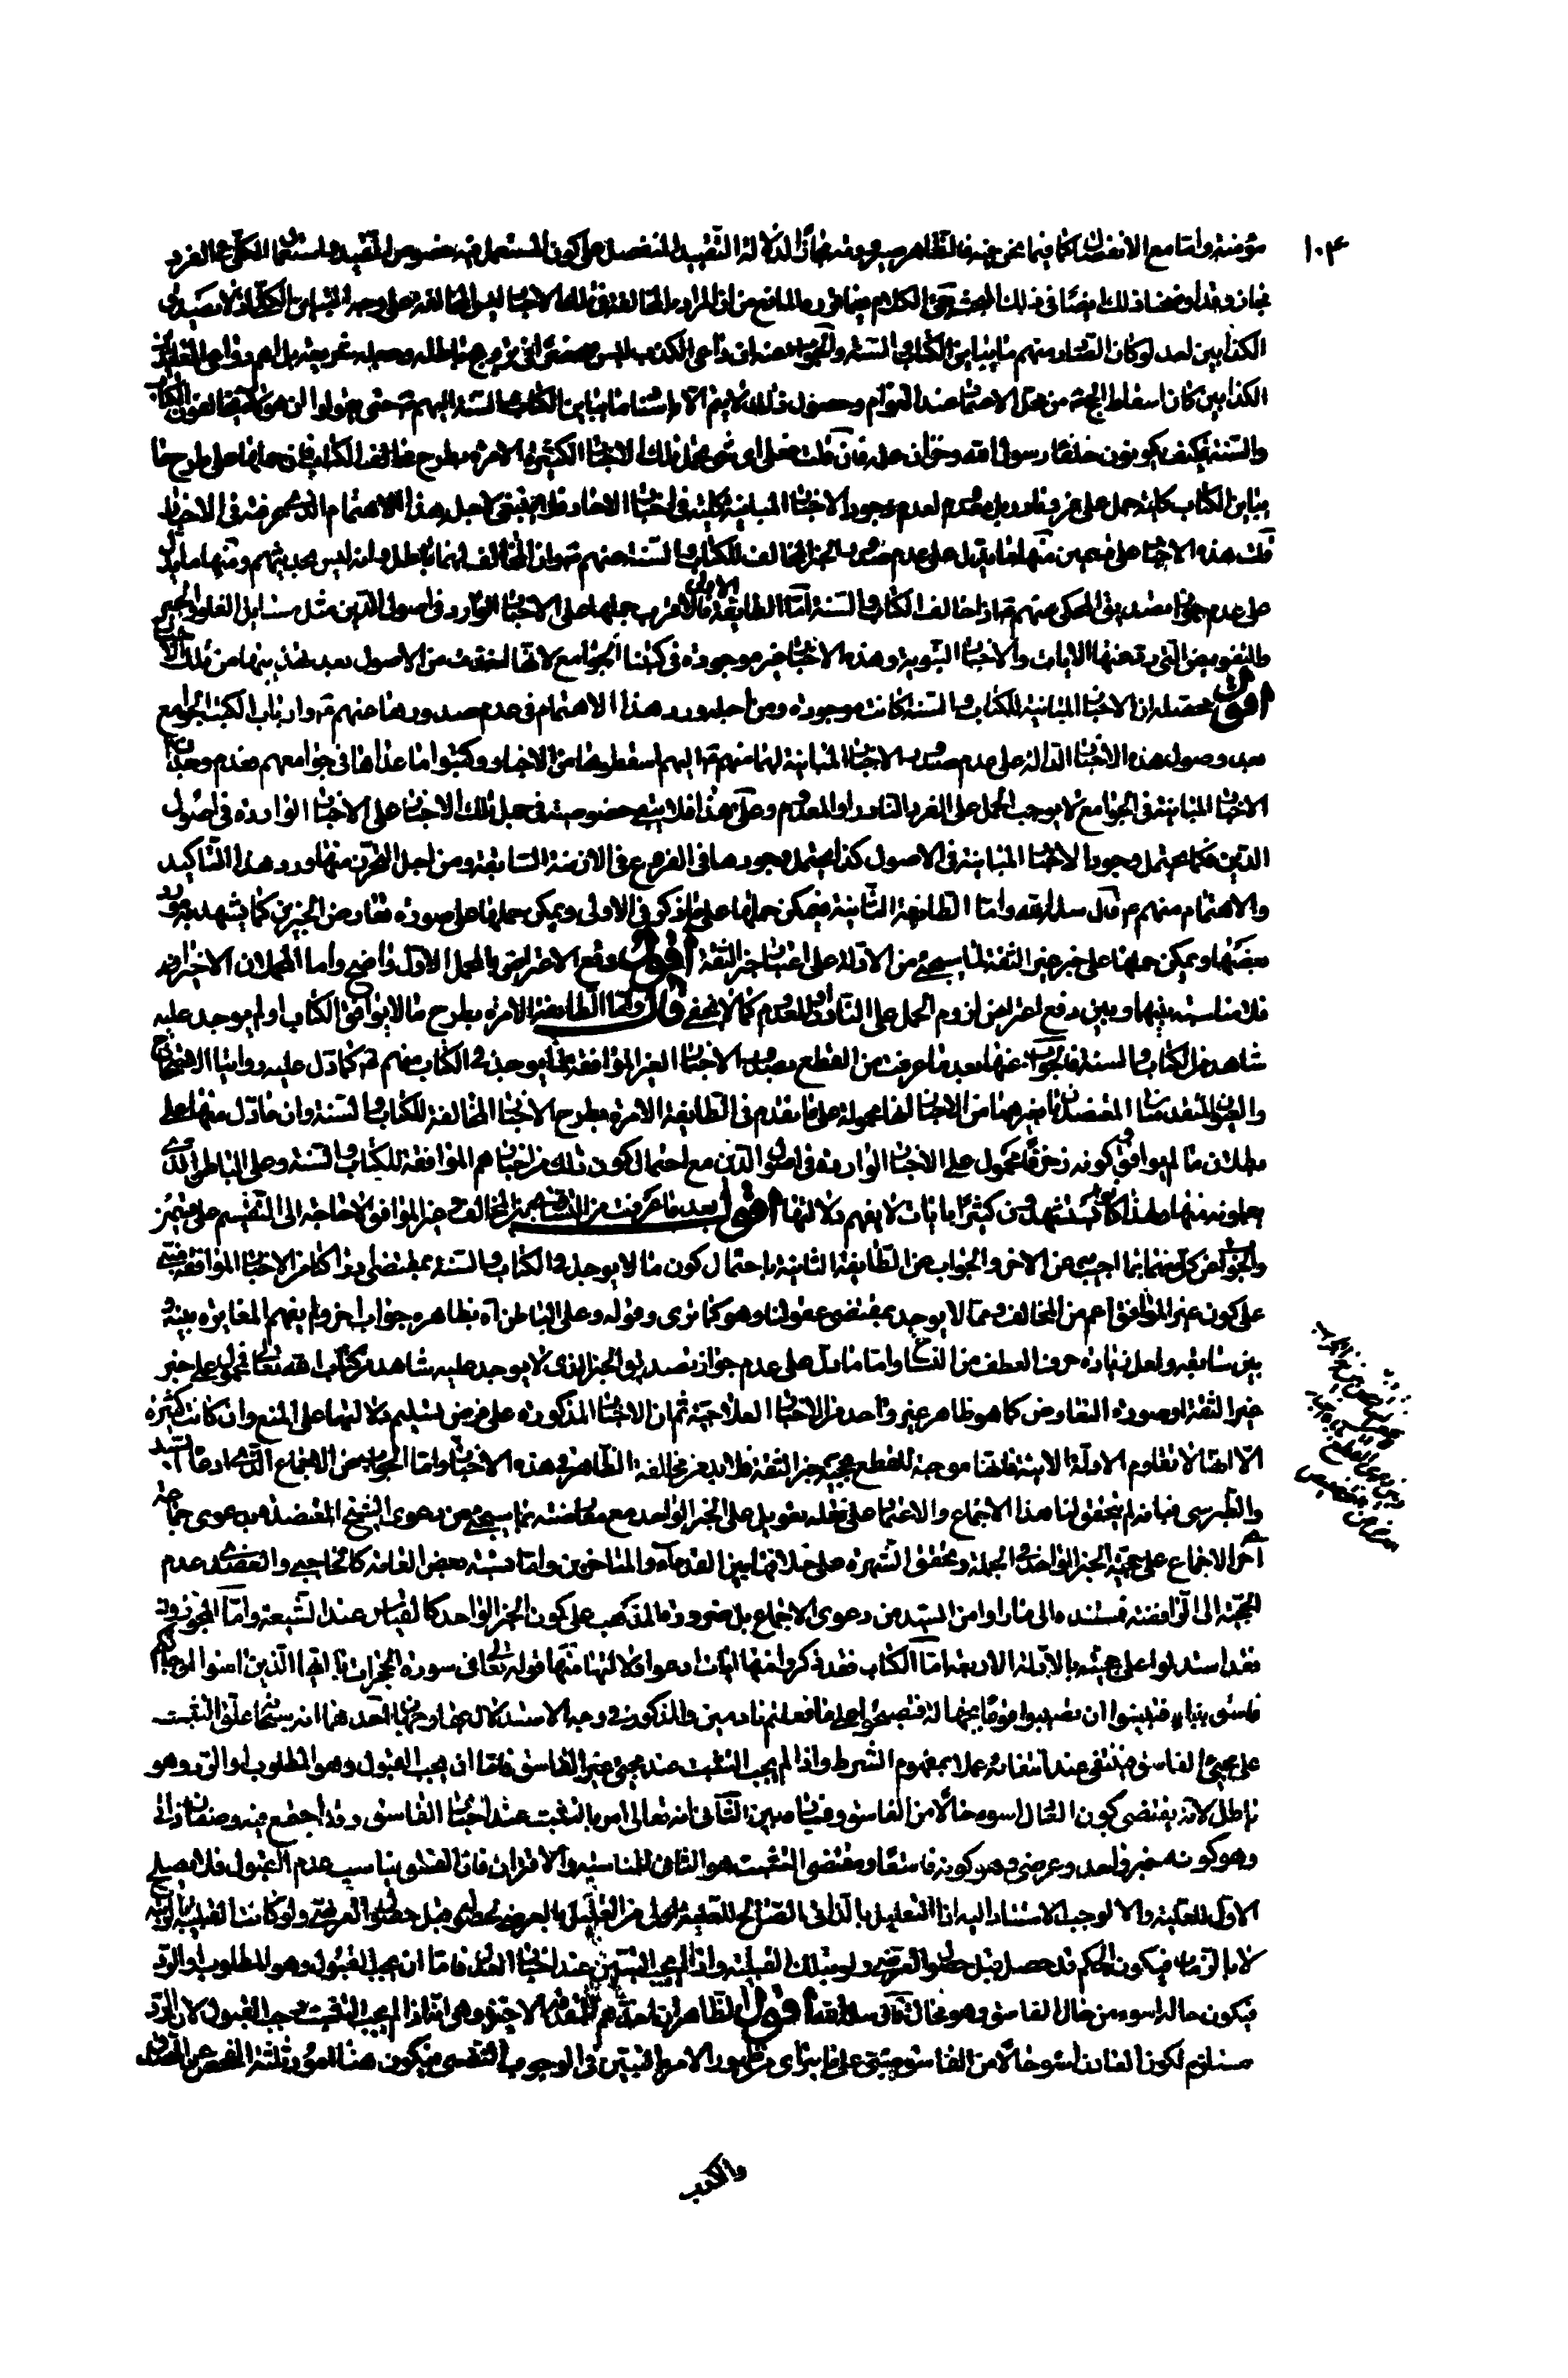 ١٠٤
مؤمنة واما مع الانفصال كما فيما نحن فيه فالظاهر صيرورته مجازا لدلالة التقييد المنفصل على كون المستعمل فيه خصوص المقيد واستعمال الكلى فى الفرد
مجاز وقد اوضحنا ذلك ايضا فى ذلك المبحث
الكذابين لعد لو كان الصادر منهم ما يباين الكتاب والسنة والجواب عنه ان داعى الكذب ليس
الكذابين كان اسقاط الائمة من محل الاعتماد عند العوام وحصول ذلك لا يتم الا باسناد ما يباين الكتاب والسنة اليهم حتى يقولوا ان هؤلاء يخالفون الكتاب
والسنة فكيف يكونون خلفاء رسول الله وخزان علمه فان قلت فعلى اى شئ يحمل تلك الاخبار الكثيرة الامرة بطرح مخالف الكتاب فان حملها على طرح ما
يباين الكتاب كلية حمل على فرد نادر بل معدوم لعدم وجود الاخبار المباينة كلية فى اخبار الاحاد فلا ينبغى لاجله هذا الاهتمام الذى عرفته فى الاخبار
قلت هذه الاخبار على قسمين منها ما يدل على عدم صدور الخبر المخالف للكتاب والسنة عنهم وان المخالف لهما باطل وانه ليس بحديثهم ومنها ما يدل
على عدم جواز تصديق المحكى عنهم اذا خالف الكتاب والسنة اما الطايفة الاولى فالاقرب حملها على الاخبار الواردة فى اصول الدين مثل مسائل الغلو والجبر
والتفويض التى وردت فيها الايات والاخبار النبوية وهذه الاخبار غير موجودة فى كتبنا الجوامع لانها اخذت من الاصول بعد تهذيبها من تلك الاخبار
اقول محصله ان الاخبار المباينة للكتاب والسنة كانت موجودة ومن اجله ورد هذا الاهتمام فى عدم صدورها عنهم وارباب الكتب الجوامع
بعد وصول هذه الاخبار الدالة على عدم صدور الاخبار المباينة لهما منهم اليهم اسقطوها من الاخبار وكتبوا ما عداها فى جوامعهم فعدم وجدان
الاخبار المباينة فى الجوامع لا يوجب الحمل على الفرد النادر او المعدوم وعلى هذا فلا يبقى خصوصية فى حمل تلك الاخبار على الاخبار الواردة فى اصول
الدين فكما يحتمل وجود الاخبار المباينة فى الاصول كذا يحتمل وجودها فى الفروع فى الازمنة السابقة ومن اجل التحرز منها ورد هذا التاكيد
والاهتمام منهم قال سلمه الله واما الطايفة الثانية فيمكن حملها على ما ذكر فى الاولى ويمكن حملها على صورة تعارض الخبرين كما يشهد به مورد
بعضها ويمكن حملها على خبر غير الثقة لما سيجئ من الادلة على اعتبار خبر الثقة اقول دفع الاعتراض بالمحمل الاول واضح واما المحملان الاخيران
فلا مناسبة بينها وبين دفع اعتراض لزوم الحمل على النادر او المعدوم كما لا يخفى قال واما الطايفة الامرة بطرح ما لا يوافق الكتاب او لم يوجد عليه
شاهد من الكتاب والسنة فالجواب عنها بعد ما عرفت من القطع بصدور الاخبار الغير الموافقة لما يوجد فى الكتاب منهم كما دل عليه روايتا الاحتجاج
والعيون المتقدمتان المعتضدتان بغيرهما من الاخبار انها محمولة على ما تقدم فى الطايفة الامرة بطرح الاخبار المخالفة للكتاب والسنة وان ما دل منها على
بطلان ما لم يوافق وكونه زخرفا محمول على الاخبار الواردة فى اصول الدين مع احتمال كون ذلك من اخبارهم الموافقة للكتاب والسنة وعلى الباطن الذى
يعلمونه منها ولهذا كانوا يستشهدون كثيرا بايات لا نفهم دلالتها اقول بعد ما عرفت من التساوى بين المخالف وغير الموافق لا حاجة الى التقسيم على قسمين
والجواب عن كل منهما بما اجيب عن الاخر والجواب عن الطايفة الثانية باحتمال كون ما لا يوجد فى الكتاب والسنة بمقتضى دواكنا من الاخبار الموافقة مبنى
على كون غير الموافق اعم من المخالف ومما لا يوجد بمقتضى عقولنا وهو كما ترى وقوله وعلى الباطن اه بظاهره جواب اخر ولم يفهم المغايرة بينه و
بين سابقه ولعل زيادة حرف العطف من النساخ واما ما دل على عدم جواز تصديق الخبر الذى لا يوجد عليه شاهد من كتاب الله تعالى فمحمول على خبر
غير الثقة او صورة التعارض كما هو ظاهر غير واحد من الاخبار العلاجية ثم ان الاخبار المذكورة على فرض تسليم دلالتها على المنع وان كانت كثيرة
الا انها لا تقاوم الادلة الاتية فانها موجبة للقطع بحجية خبر الثقة فلا بد من مخالفة الظاهر فى هذه الاخبار واما الجواب عن الاجماع الذى ادعاه السيد
والطبرسى فبانه لم يتحقق لنا هذا الاجماع والاعتماد على نقله تعويل على الخبر الواحد مع معارضته بما سيجئ من دعوى الشيخ المعتضدة بدعوى جماعة
اخرى الاجماع على حجية الخبر الواحد فى الجملة وتحقق الشهرة على خلافها بين القدماء والمتاخرين واما نسبة بعض العامة كالحاجبى والعضدى عدم
الحجية الى الرافضة فمستندة الى ما راوا من السيد من دعوى الاجماع بل ضرورة المذهب على كون الخبر الواحد كالقياس عند الشيعة واما المجوزون
فقد استدلوا على حجيته بالادلة الاربعة اما الكتاب فقد ذكروا منها ايات ادعوا دلالتها منها قوله تعالى فى سورة الحجرات يا ايها الذين امنوا ان جاءكم
فاسق بنباء فتبينوا ان تصيبوا قوما بجهالة فتصبحوا على ما فعلتم نادمين والمذكور فى وجه الاستدلال بها وجهان احدهما انه سبحانه علق التثبت
على مجئ الفاسق فينتفى عند انتفائه عملا بمفهوم الشرط واذا لم يجب التثبت عند مجئ غير الفاسق فاما ان يجب القبول وهو المطلوب او الرد وهو
باطل لانه يقتضى كون العادل اسوء حالا من الفاسق وفساده بين الثانى انه تعالى امر بالتثبت عند اخبار الفاسق وقد اجتمع فيه وصفان ذاتى
وهو كونه خبر واحد وعرضى وهو كونه فاسقا ومقتضى التثبت هو الثانى للمناسبة والاقتران فان الفسق يناسب عدم القبول فلا يصلح
الاول للعلية والا لوجب الاستناد اليه اذ التعليل بالذاتى الصالح للعلية اولى من التعليل بالعرضى لحصوله قبل حصول العرضى
فيكون الحكم قد حصل قبل حصول العرضى واذا لم يجب التبين عند اخبار العدل فاما ان يجب القبول وهو المطلوب او الرد
فيكون حاله اسوء من حال الفاسق وهو محال قال سلمه الله اقول الظاهر ان اخذهم للمقدمة الاخيرة وهى انه اذا لم يجب التثبت وجب القبول لان الرد
مستلزم لكون العادل اسوء حالا من الفاسق مبنى على ما يترااى من ظهور الامر بالتبين فى الوجوب النفسى فيكون هنا امور ثلثة الفحص عن الصدق
والكذب